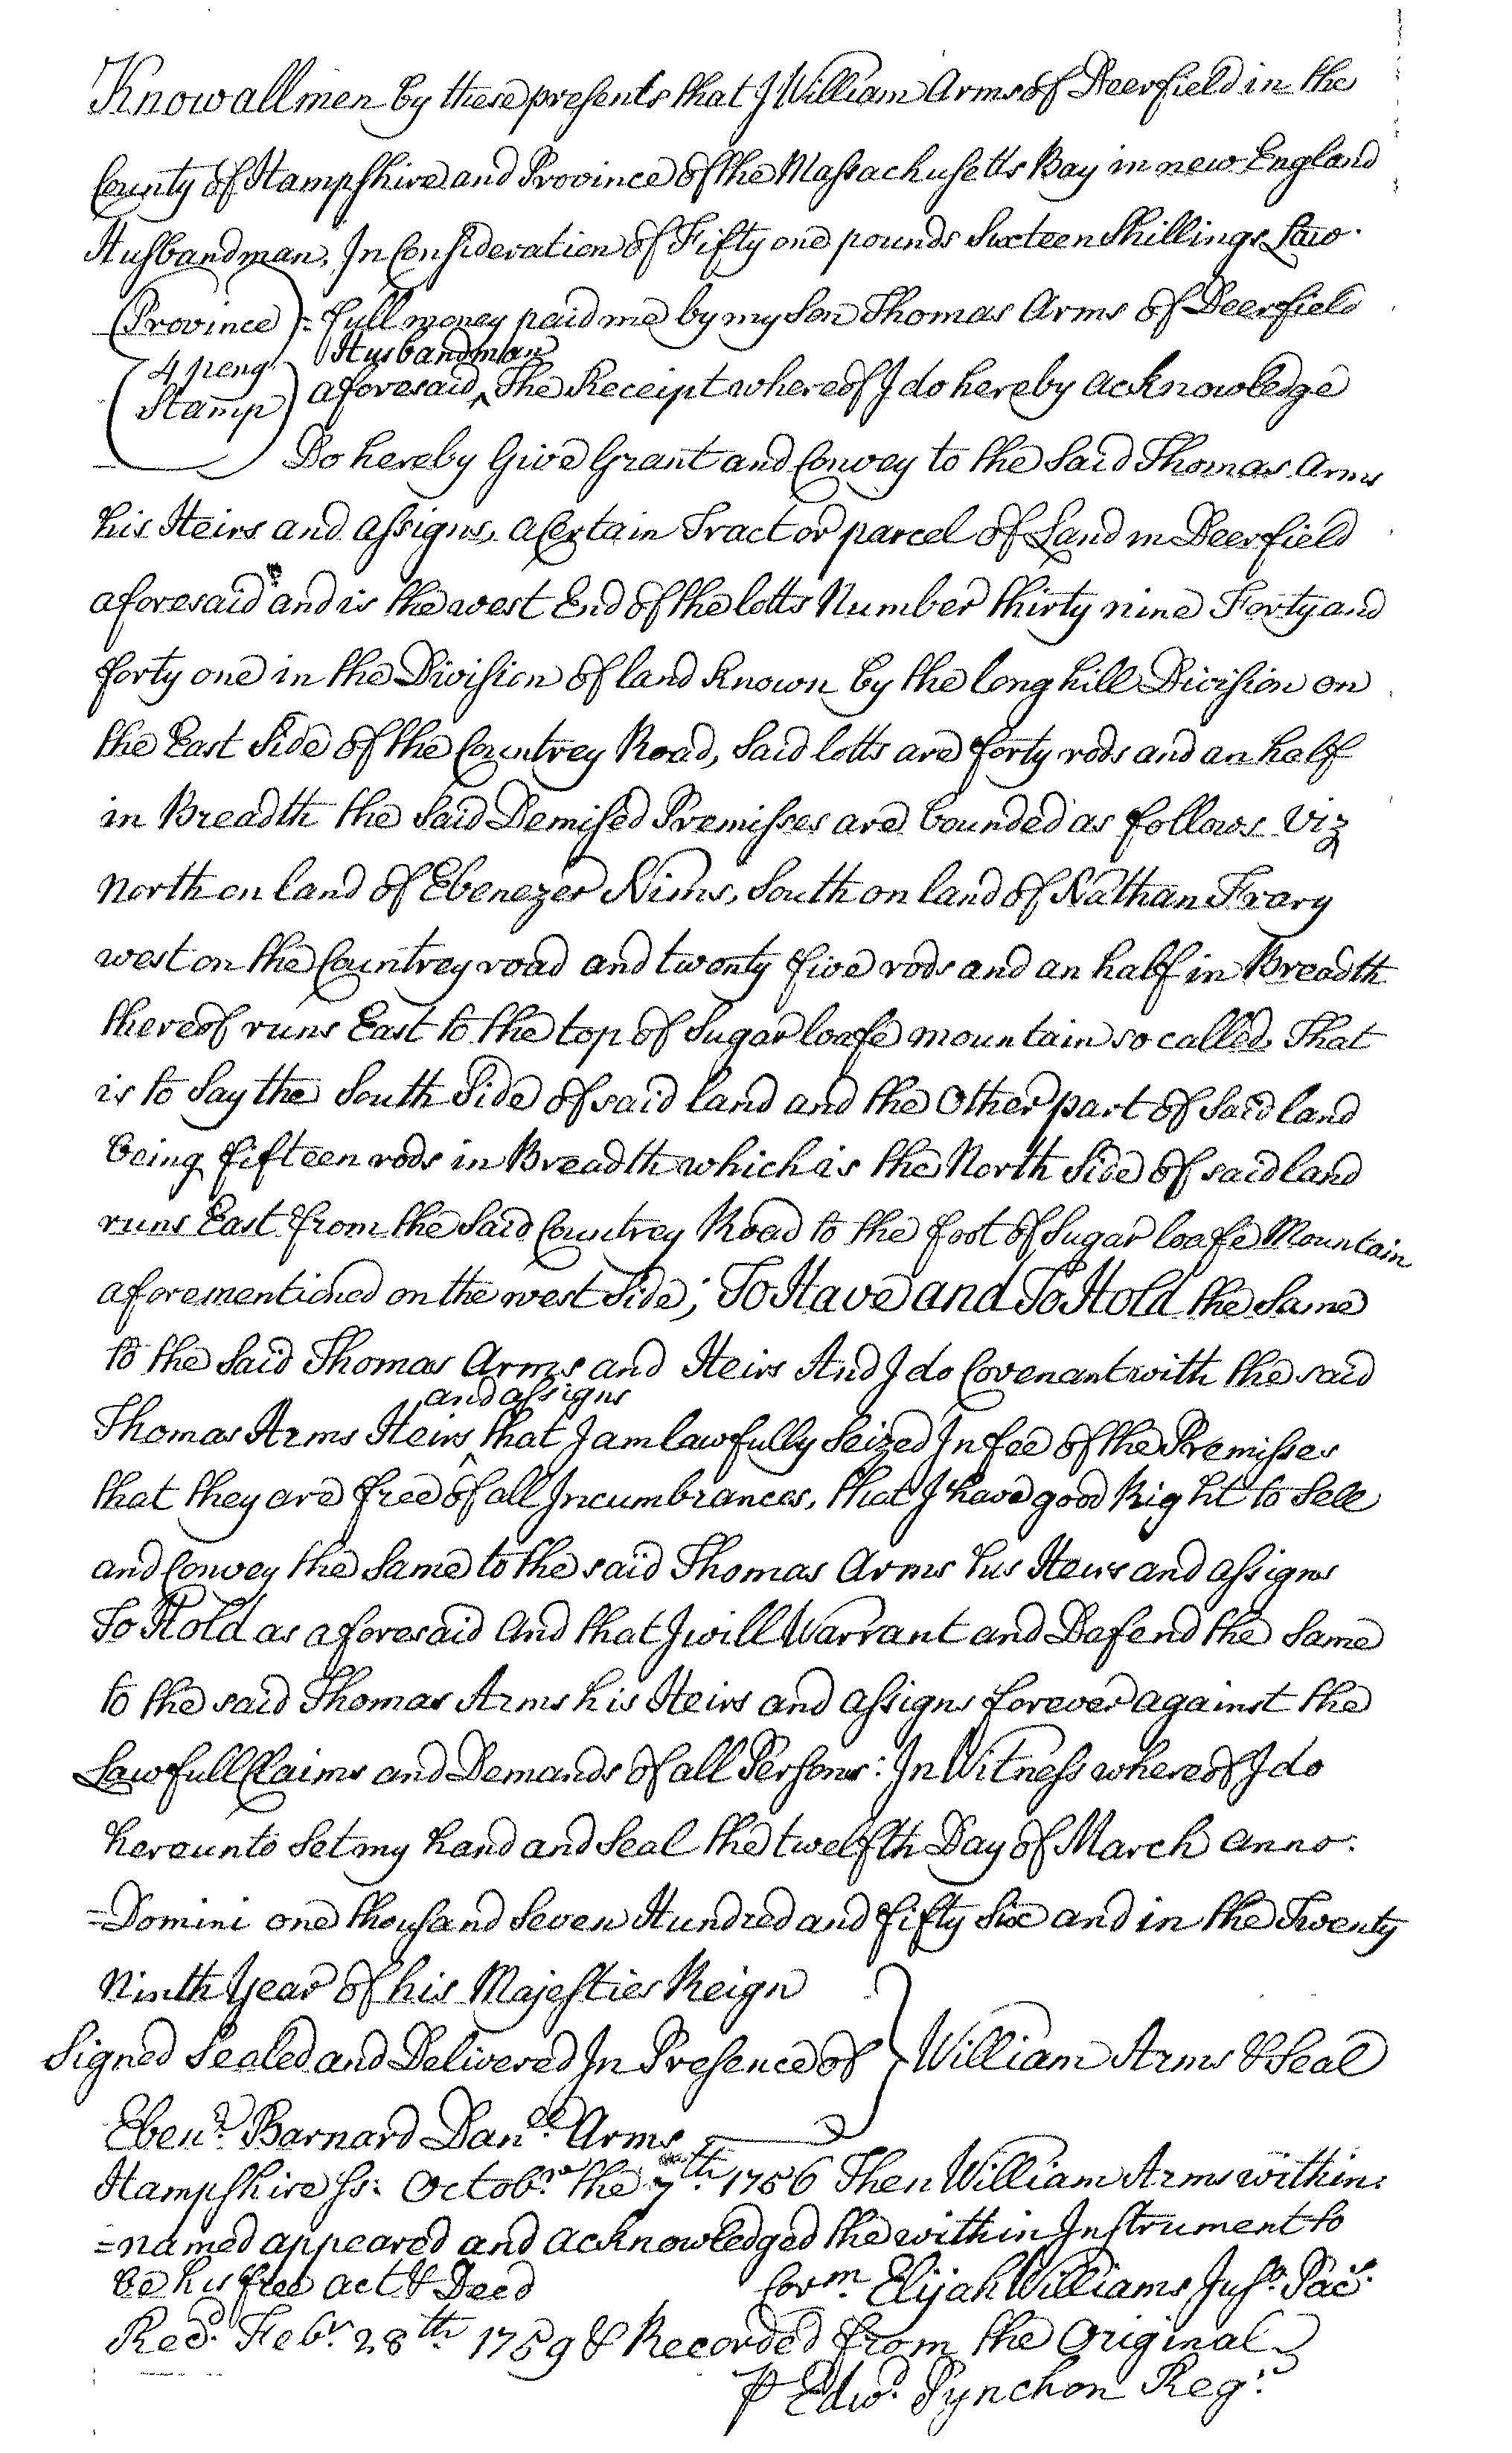 Know all men by these presents that I William Arms of Deerfield in the
County of Hampshire and Province of the Massachusetts Bay in new England
Husbandman, In Consideration of Fifty one pounds Sixteen Shillings Law
(Province) = full money paid me by my Son Thomas Arms of Deerfield
Husbandman
4 peny
aforesaid ^ The Receipt whereof I do hereby acknowledge
Stamp
Do hereby Give Grant and Convey to the Said Thomas Arms
his Heirs and assigns, a Certain Tract or parcel of Land in Deerfield
aforesaid and is the west End of the lotts Number thirty nine Forty and
forty one in the Division of land Known by the long hill Division on
the East Side of the Countrey Road, Said lotts are forty rods and an half
in Breadth the Said Demised Premisses are bounded as follows Viz
North on land of Ebenezer Nims, South on land of Nathan Frary
west on the Countrey road and twenty five rods and an half in Breadth
thereof runs East to the top of Sugar loafe mountain so called, That
is to Say the South Side of said land and the Other part of Said land
being fifteen rods in Breadth which is the North Side of said land
runs East from the Said Countrey Road to the foot of Sugar loafe Mountain
aforementioned on the west Side; To Have and To Hold the Same
to the Said Thomas Arms and Heirs And I do Covenant with the said
and assigns
Thomas Arms Heirs ^ that I am lawfully Seized In fee of the Premisses
that they are free of all Incumbrances, that I have good Right to Sell
and Convey the Same to the said Thomas Arms his Heirs and assigns
To Hold as aforesaid And that I will Warrant and Defend the Same
to the said Thomas Arms his Heirs and assigns forever against the
Lawfull Claims and Demands of all Persons: In Witness whereof I do
hereunto Set my hand and Seal the twelfth Day of March anno.
=Domini one thousand Seven Hundred and fifty Six and in the Twenty
Ninth Year of his Majesties Reign
Signed Sealed and Delivered In Presence of } William Arms & Seal
Ebenr. Barnard Danll. Arms
Hampshire ss: Octobr. the 7th. 1756 Then William Arms within:
=named appeared and acknowledged the within Instrument to
be his free act & Deed Corm. Elijah Williams Jusc. Pac.
Recd. Febr. 28th 1759 & Recorded from the Original
⅌ Edwd. Pynchon Regr.